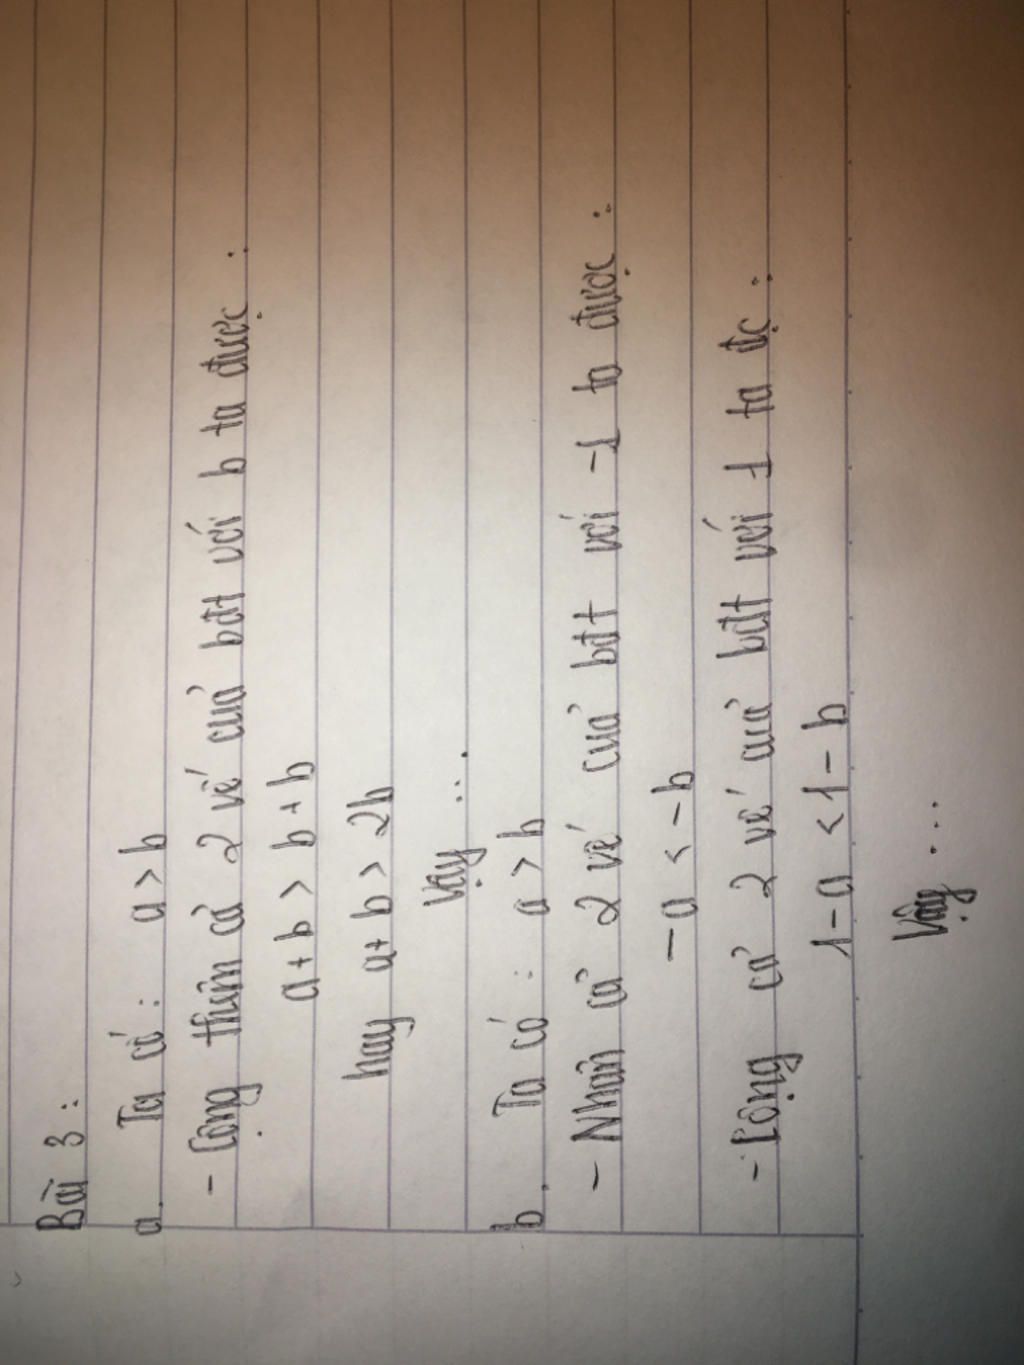 Bài 3:
a. Ta có: a > b
- Cộng thêm cả 2 vế của bđt với b ta được:
a + b > b + b
hay a + b > 2b
Vậy ...
b. Ta có: a > b
- Nhân cả 2 vế của bđt với -1 ta được:
-a < -b
- Cộng cả 2 vế của bđt với 1 ta đc:
1 - a < 1 - b
Vậy ...